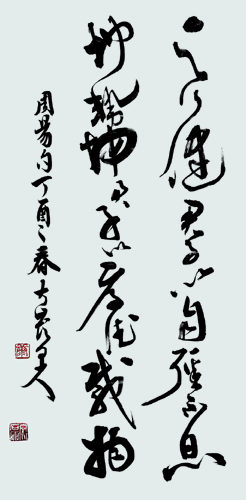 天行健君子以自強不息
地勢坤君子以厚德載物
周易句丁酉春